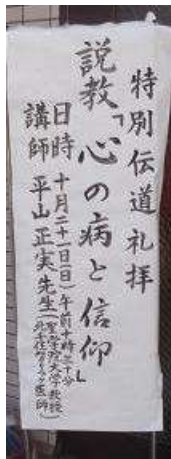 特別伝道礼拝
説教「心の病と信仰」
日時 十月二十一日(日)午前十時三十分
講師 平山正実先生(聖学院大学教授
医師)